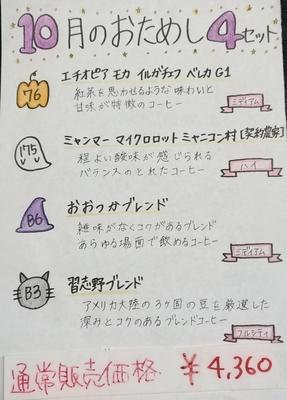 10月のおためし4セット
76
エチオピア モカ イルガチェフ ベレカ G1
紅茶を思わせるような味わいと
甘味が特徴のコーヒー
ミディアム
175
ミャンマー マイクロロット ミャニコン村【契約農家】
程よい酸味が感じられる
バランスのとれたコーヒー
ハイ
B6
おおつかブレンド
雑味がなくコクがあるブレンド
あらゆる場面で飲めるコーヒー
ミディアム
B3
習志野ブレンド
アメリカ大陸の3ヶ国の豆を厳選した
深みとコクのあるブレンドコーヒー
フルシティ
通常販売価格 ¥4,360